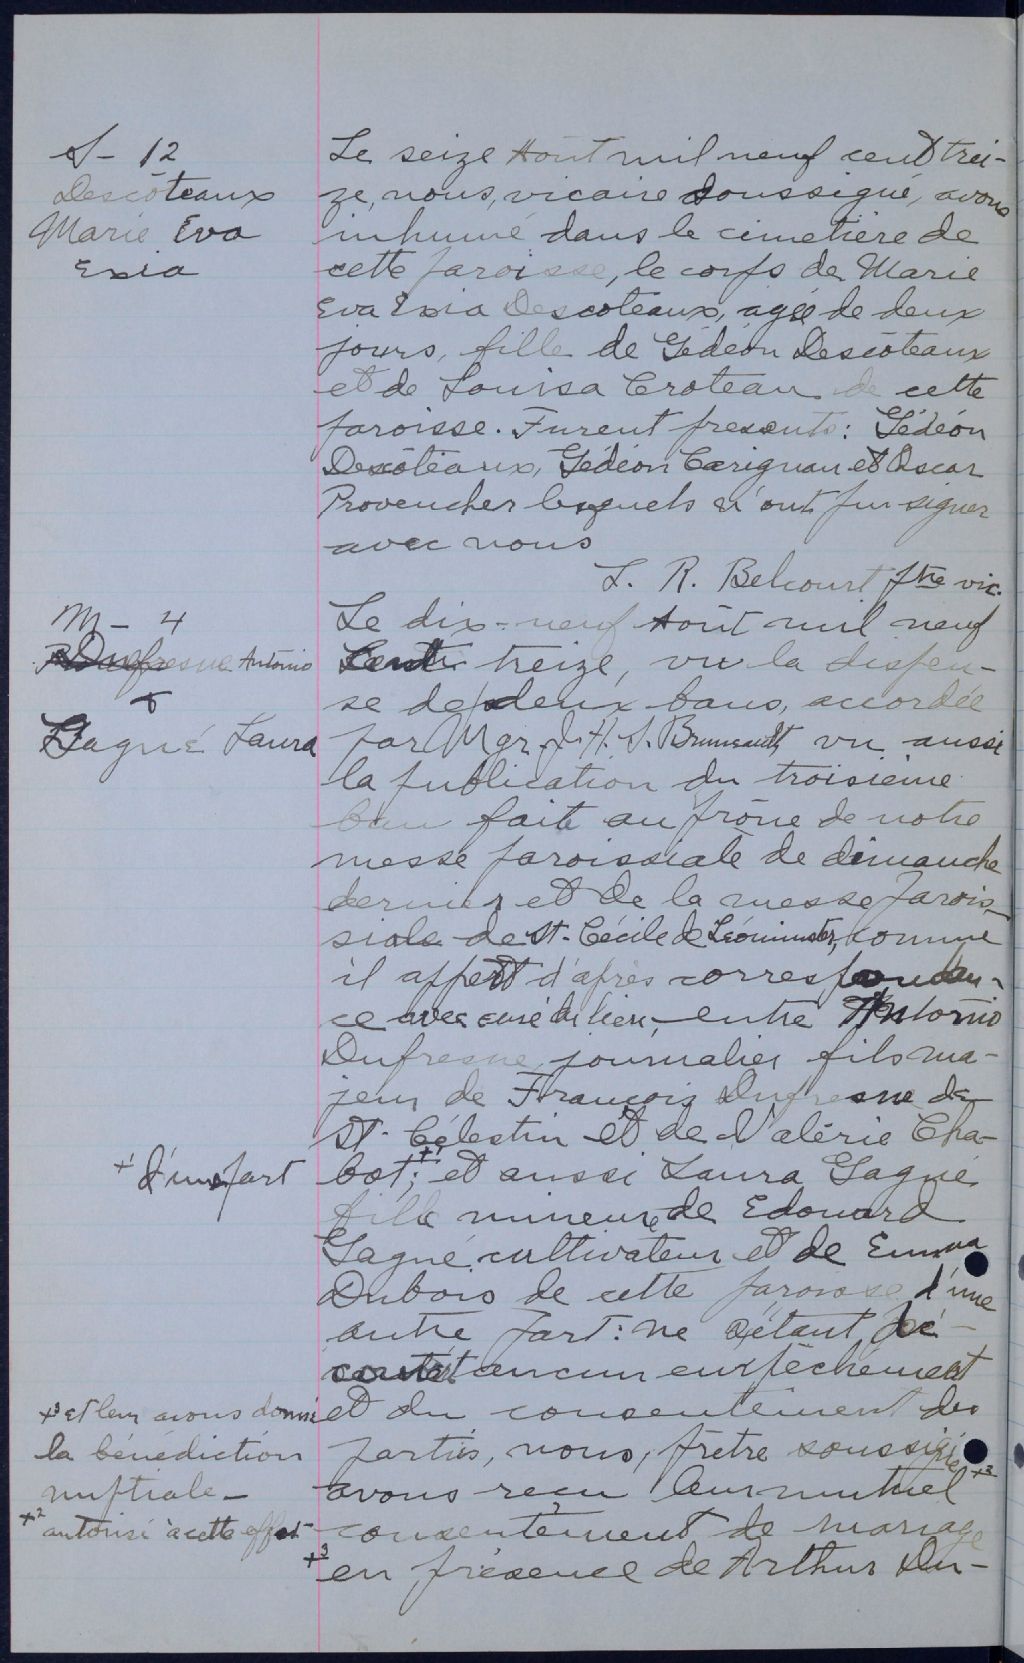 S - 12
Descôteaux
Marie Eva
Exia
Le seize Août mil neuf cent trei-
ze, nous, vicaire soussigné, avons
inhumé dans le cimetière de
cette paroisse, le corps de Marie
Eva Exia Descoteaux, agée de deux
jours, fille de Gédéon Descôteaux
et de Louisa Croteau de cette
paroisse. Furent presents: Gédéon
Descôteaux, Gédéon Carignan et Oscar
Provencher lesquels n'ont pu signer
avec nous
L. R. Belcourt ptre vic.
M - 4
Dufresne Antonio
&
Gagné Laura
Le dix-neuf Août mil neuf
Cent treize, vu la dispen-
se de deux bans, accordée
par Mgr J. H. S. Brunault vu aussi
la publication du troisième
ban faite au prône de notre
messe paroissiale de dimanche
dernier et de la messe parois-
siale de St. Cécile de Léominster, comme
il appert d'après corresponden-
ce avec curé du lieu, entre Antonio
Dufresne, journalier fils ma-
jeur de François Dufresne de
St. Célestin et de Valérie Cha-
+' d'une part
bot; +' et aussi Laura Gagné
fille mineure de Edouard
Gagné cultivateur et de Emma
Dubois de cette paroisse d'une
autre part: ne s'étant dé-
couvert aucun empêchement
+3 et leur avons donné
la bénédiction
nuptiale -
+2 autorisé à cette effet -
et du consentement des
parties, nous, prêtre soussigné +2
avons reçu leur mutuel
consentement de mariage
+3 en présence de Arthur Du-